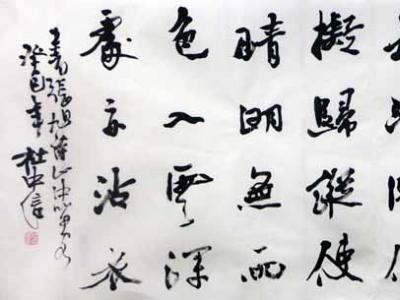 擬歸縱使
晴明無雨
色入雲深
處亦沾衣
書張旭詩山中留客
癸巳年杜中信